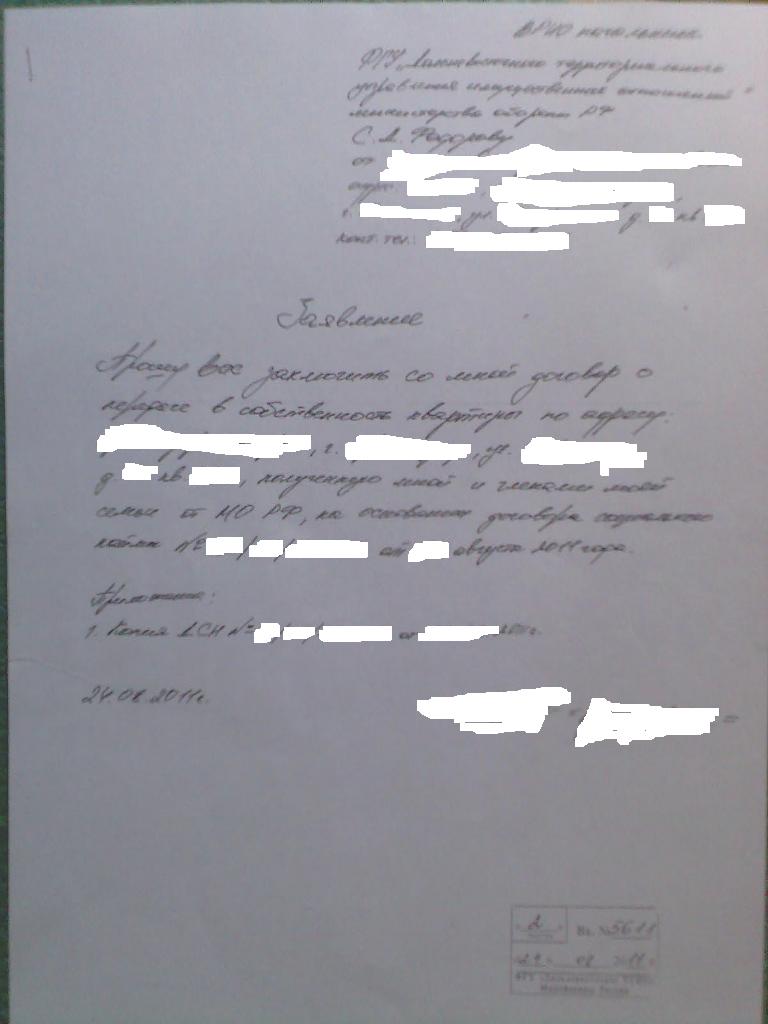 ВРИО начальника
ФГУ „Дальневосточного территориального
управления имущественных отношений"
министерства обороны РФ
С. А. Федорову
от
адрес:
г. , ул. д. кв
конт. тел.:
Заявление
Прошу Вас заключить со мной договор о
передаче в собственность квартиры по адресу:
, г. , ул.
д. кв. , полученную мной и членами моей
семьи от МО РФ, на основании договора социального
найма № / / от августа 2011 года.
Приложение:
1. Копия ДСН № / / от 2011г.
24.08.2011г.
2 Вх. № 5611
"24" 08 2011
Минобороны России